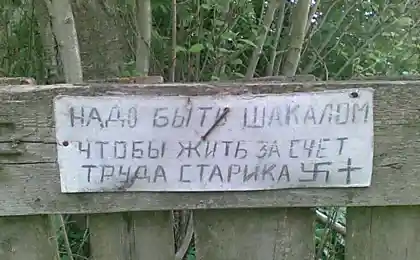 НАДО БЫТЬ ШАКАЛОМ
ЧТОБЫ ЖИТЬ ЗА СЧЕТ
ТРУДА СТАРИКА 卐 +